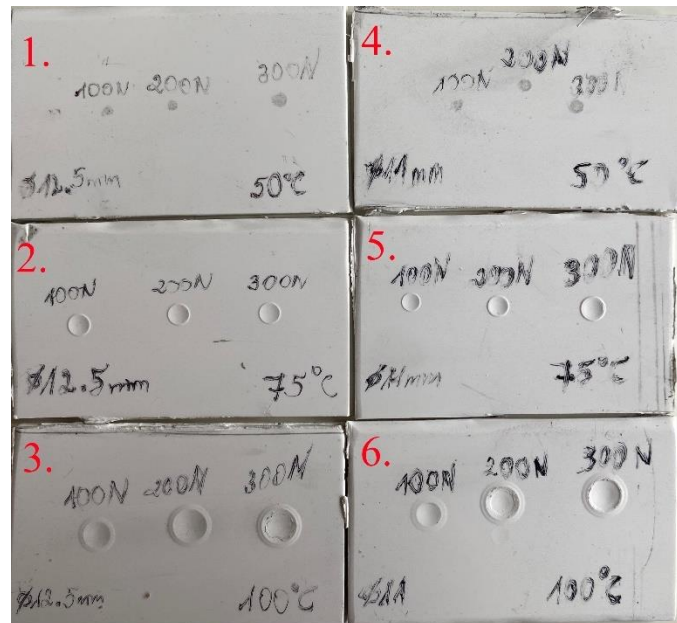 1.
100N 200N 300N
ø12.5mm 50°C
4.
100N 200N 300N
ø11mm 50°C
2.
100N 200N 300N
ø12.5mm 75°C
5.
100N 200N 300N
ø11mm 75°C
3.
100N 200N 300N
ø12.5mm 100°C
6.
100N 200N 300N
ø11 100°C